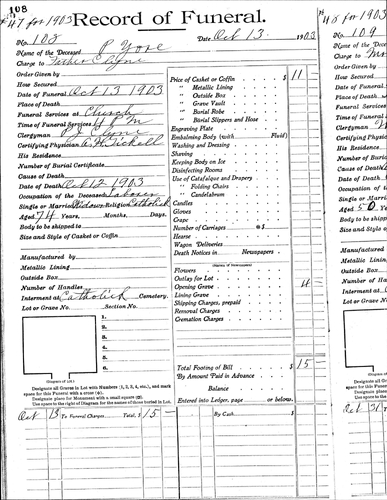 108
#47 for 1903
Record of Funeral.
No. 108
Date Oct 13 1903
Name of the Deceased P Yore
Charge to Father Clyne
Order Given by
How Secured
Date of Funeral Oct 13 1903
Place of Death
Funeral Services at Church
Time of Funeral Services
Clergyman P J Clyne
Certifying Physician
His Residence
Number of Burial Certificate
Cause of Death
Date of Death Oct 12 1903
Occupation of the Deceased Laborer
Single or Married Widower Religion Catholick
Aged 74 Years, Months, Days.
Body to be shipped to
Size and Style of Casket or Coffin
Manufactured by
Metallic Lining
Outside Box
Number of Handles
Interment at Catholick Cemetery.
Lot or Grave No. Section No.
1.
2.
3.
4.
5.
6.
(Diagram of Lot.)
Designate all Graves in Lot with Numbers (1, 2, 3, 4, etc.), and mark
space for this Funeral with a cross (x).
Designate place for Monument with a small square (□).
Use space to the right of Diagram for the names of those buried in Lot.
Price of Casket or Coffin $ 11
" Metallic Lining
" Outside Box
" Grave Vault
" Burial Robe
" Burial Slippers and Hose
Engraving Plate
Embalming Body (with Fluid)
Washing and Dressing
Shaving
Keeping Body on Ice
Disinfecting Rooms
Use of Catafalque and Drapery
" Folding Chairs
" Candelabrum
Candles
Gloves
Crape
Number of Carriages @ $
Hearse
Wagon Deliveries
Death Notices in Newspapers
Flowers
Outlay for Lot
Opening Grave 4
Lining Grave
Shipping Charges, prepaid
Removal Charges
Cremation Charges
Total Footing of Bill $ 15 -
By Amount Paid in Advance
Balance
Entered into Ledger, page or below.
Oct 13 To Funeral Charges Total, $ 15 -
By Cash $
for 1903
No. 109
Name of the
Charge to
Order Given
How Secured
Date of
Place of
Funeral
Time of
Clergyman
Certifying
His Residence
Number of
Cause of
Date of
Occupation
Single or
Aged 50
Body to be
Size and
Manufactured
Metallic
Outside
Number
Interment
Lot or
Oct 31